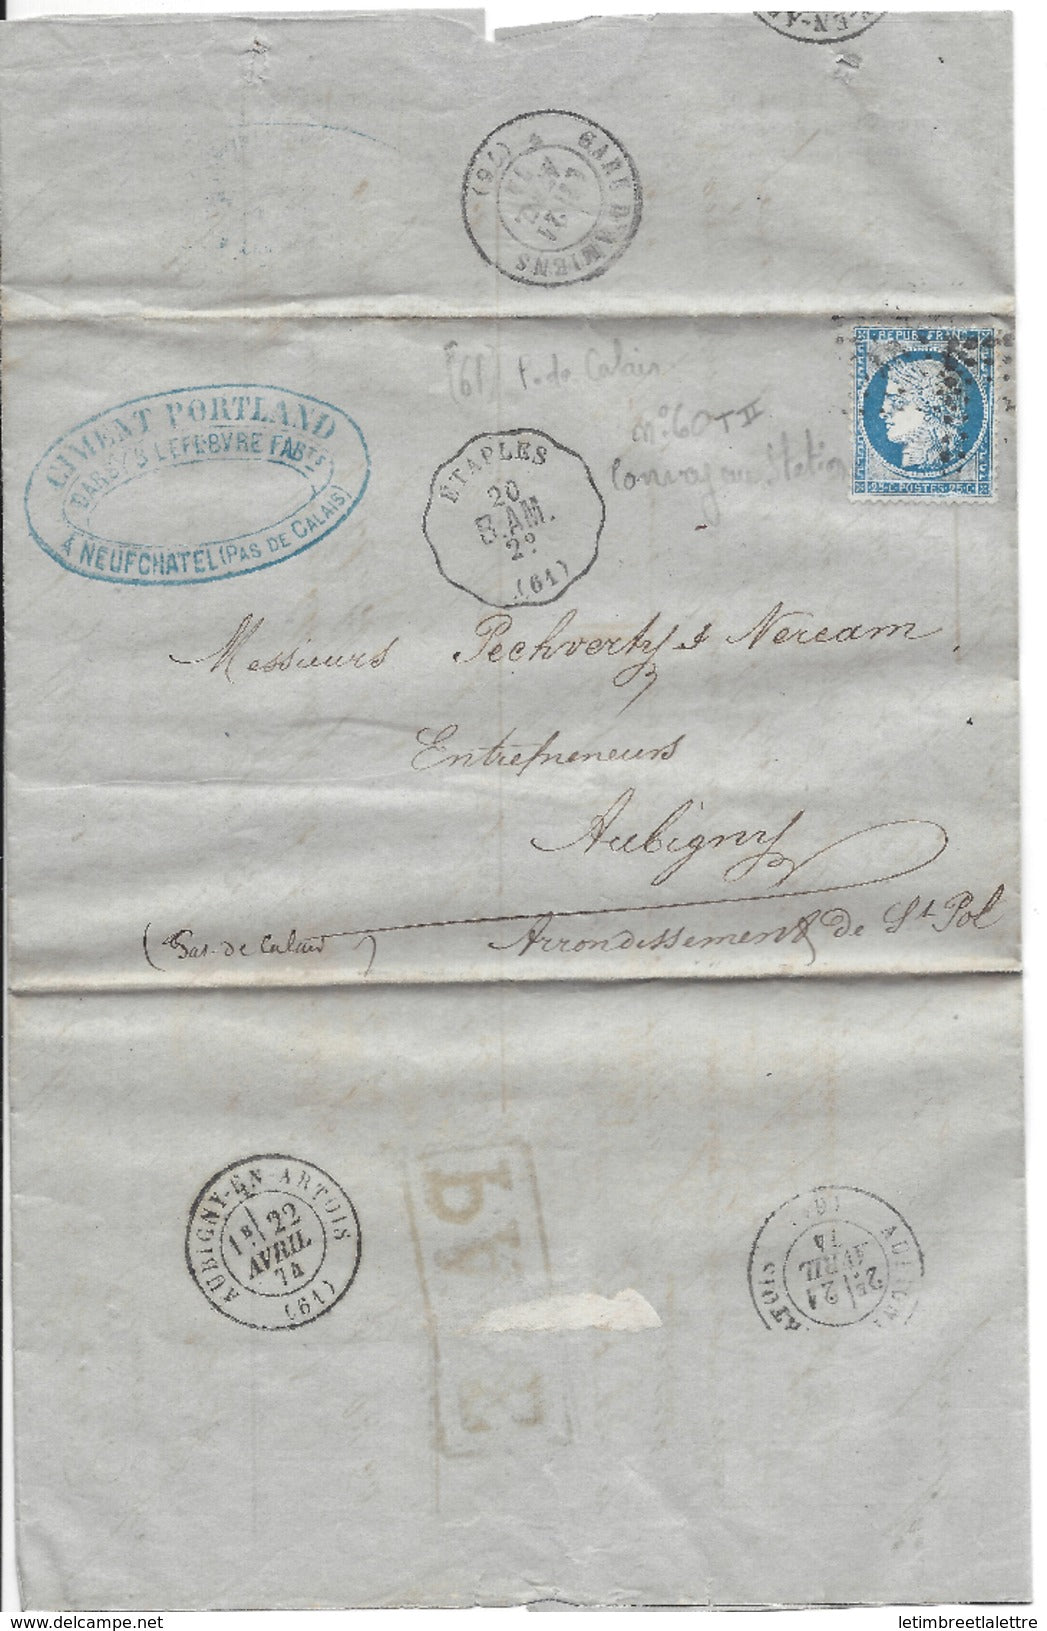 GARE D'AMIENS
(76)
REPUB. FRANC.
25 C. POSTES 25 C.
(61) P. de Calais
n° 60 T II
Convoyeur Station
CIMENT PORTLAND
LEFEBVRE FABTS
A NEUFCHATEL (PAS DE CALAIS)
ÉTAPLES
20
B.AM.
2°
(61)
Messieurs Pechverty & Neream
Entrepreneurs
Aubigny
(Pas-de Calais) Arrondissement de St Pol
AUBIGNY-EN-ARTOIS
1E 22
AVRIL
74
(61)
AUBIGNY
2E 21
AVRIL
74
(61)
letimbreetlalettre